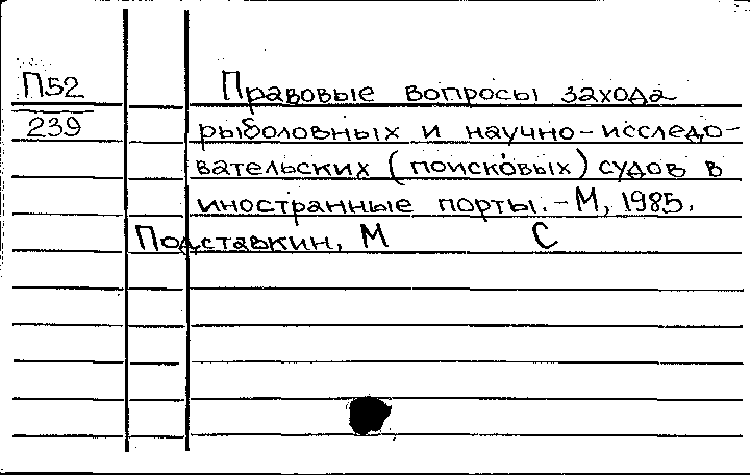 П52 Правовые вопросы захода
239 рыболовных и научно-исследо-
вательских (поисковых) судов в
иностранные порты.-М, 1985.
Подставкин, М С